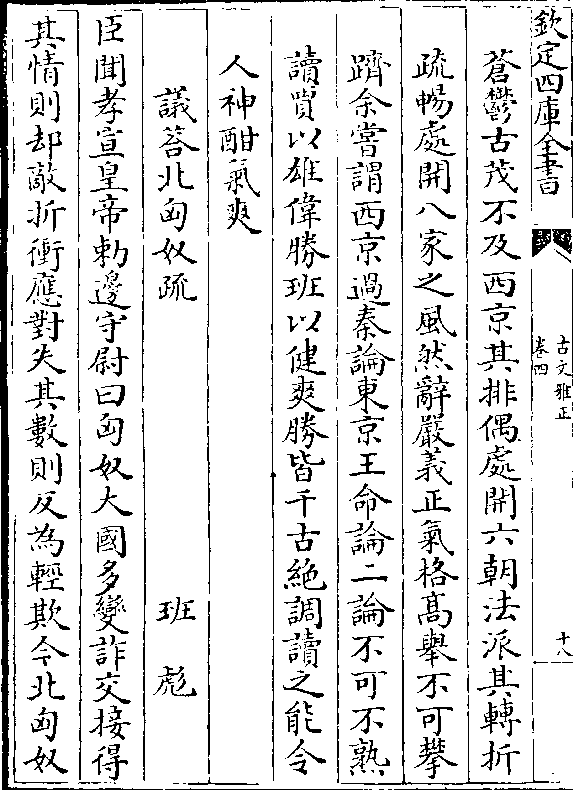 欽定四庫全書
古文雅正
卷四
十八
蒼鬱古茂不及西京其排偶處開六朝法派其轉折
疏暢處開八家之風然辭嚴義正氣格髙舉不可攀
躋余嘗謂西京過秦論東京王命論二論不可不熟
讀賈以雄偉勝班以健爽勝皆千古絶調讀之能令
人神酣氣爽
議荅北匈奴疏 班彪
臣聞孝宣皇帝勅邊守尉曰匈奴大國多變詐交接得
其情則却敵折衝應對失其數則反為輕欺今北匈奴